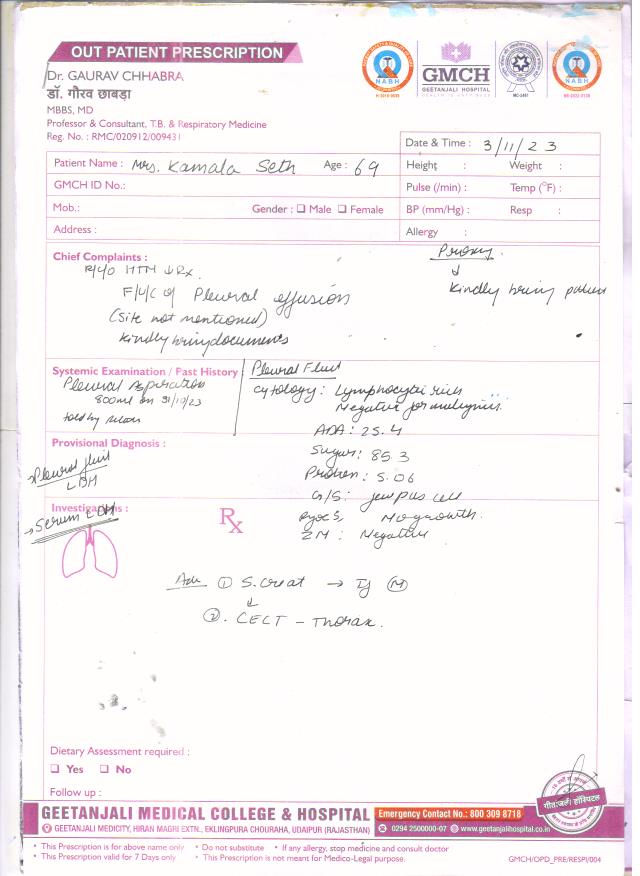 OUT PATIENT PRESCRIPTION
Dr. GAURAV CHHABRA
डॉ. गौरव छाबड़ा
MBBS, MD
Professor & Consultant, T.B. & Respiratory Medicine
Reg. No. : RMC/020912/009431
NABH
GMCH
GEETANJALI HOSPITAL
NABH
Date & Time : 3/11/23
Patient Name : Mrs. Kamala Seth Age : 69
Height : Weight :
GMCH ID No.:
Pulse (/min) : Temp (°F) :
Mob.: Gender : ☐ Male ☐ Female
BP (mm/Hg) : Resp :
Address :
Allergy :
Chief Complaints :
HTN ↓ Rx.
F/U/C of Pleural effusion
(Site not mentioned)
kindly bring documents
Proxy
↓
Kindly bring patient
Systemic Examination / Past History
Pleural Aspiration
800ml on 31/10/23
told by
Pleural Fluid
Cytology : Lymphocyte rich
Negative for malignis..
ADA : 25.4
Sugar : 85.3
Protein : 5.06
G/S : few pus cell
Pyo C/S, No growth.
ZN : Negative
Provisional Diagnosis :
→ Pleural fluid
LDH
Investigations :
→ Serum LDH
Rx
Adv ① S. Creat → If (N)
↓
②. CECT - Thorax.
Dietary Assessment required :
☐ Yes ☐ No
Follow up :
गीतांजली हॉस्पिटल
GEETANJALI MEDICAL COLLEGE & HOSPITAL
Emergency Contact No.: 800 309 8718
GEETANJALI MEDICITY, HIRAN MAGRI EXTN., EKLINGPURA CHOURAHA, UDAIPUR (RAJASTHAN)
0294 2500000-07 www.geetanjalihospital.co.in
• This Prescription is for above name only • Do not substitute • If any allergy, stop medicine and consult doctor
• This Prescription valid for 7 Days only • This Prescription is not meant for Medico-Legal purpose.
GMCH/OPD_PRE/RESPI/004